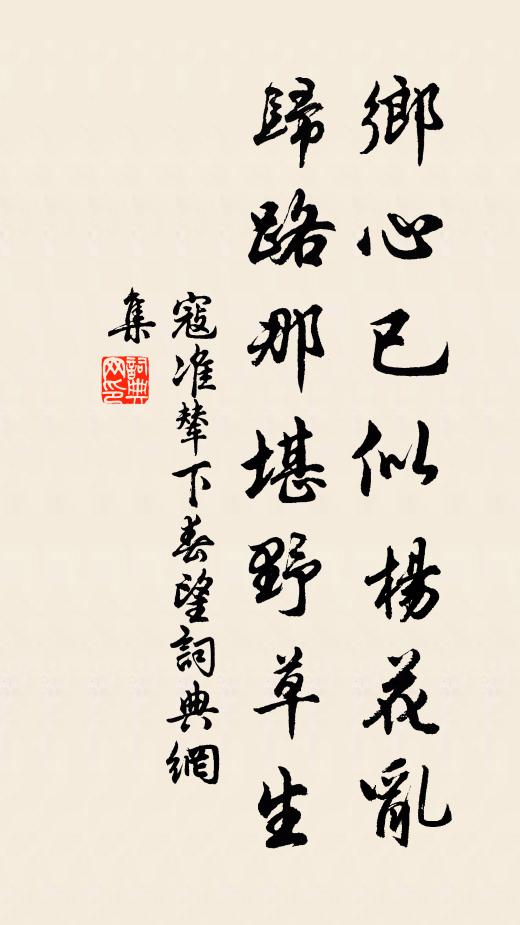 鄉心已似楊花亂
歸路那堪野草生
寇准輦下春望詞典網
集
詞典
网印